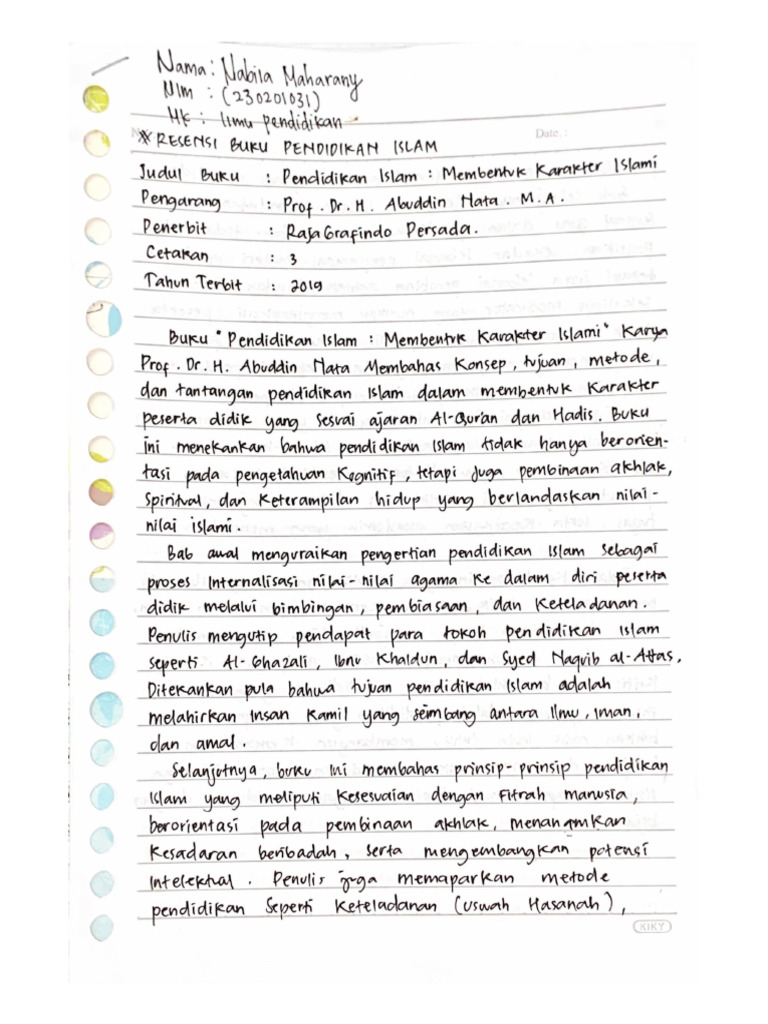 Nama : Nabila Maharany
NIm : (230201031)
Mk : Ilmu pendidikan
Date. :
* RESENSI BUKU PENDIDIKAN ISLAM
Judul Buku : Pendidikan Islam : Membentuk Karakter Islami
Pengarang : Prof. Dr. H. Abuddin Nata. M.A.
Penerbit : RajaGrafindo Persada.
Cetakan : 3
Tahun Terbit : 2019
Buku "Pendidikan Islam : Membentuk Karakter Islami" Karya
Prof. Dr. H. Abuddin Nata Membahas Konsep, tujuan, metode,
dan tantangan pendidikan Islam dalam membentuk Karakter
peserta didik yang sesuai ajaran Al-Qur'an dan Hadis. Buku
ini menekankan bahwa pendidikan Islam tidak hanya berorien-
tasi pada pengetahuan Kognitif, tetapi juga pembinaan akhlak,
Spiritual, dan Keterampilan hidup yang berlandaskan nilai-
nilai islami.
Bab awal menguraikan pengertian pendidikan Islam sebagai
proses Internalisasi nilai-nilai agama Ke dalam diri peserta
didik melalui bimbingan, pembiasaan, dan Keteladanan.
Penulis mengutip pendapat para tokoh pendidikan Islam
seperti Al-Ghazali, Ibnu Khaldun, dan Syed Naquib al-Attas.
Ditekankan pula bahwa tujuan pendidikan Islam adalah
melahirkan Insan Kamil yang seimbang antara Ilmu, Iman,
dan amal.
Selanjutnya, buku Ini membahas prinsip-prinsip pendidikan
Islam yang meliputi Kesesuaian dengan Fitrah manusia,
berorientasi pada pembinaan akhlak, menanamkan
Kesadaran beribadah, serta mengembangkan potensi
Intelektual. Penulis juga memaparkan metode
pendidikan Seperti Keteladanan (Uswah Hasanah),
KIKY